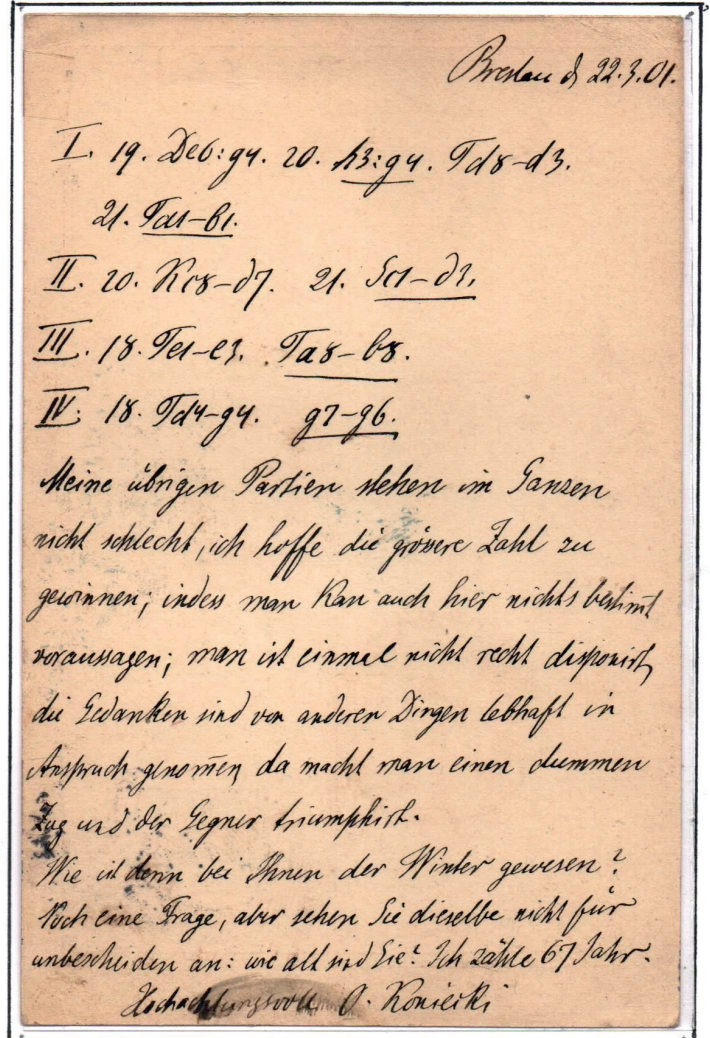 Breslau d 22.3.01.
I. 19. De6:g4. 20. h3:g4. Td8-d3.
21. Td1-b1.
II. 20. Kc8-d7. 21. Sc1-d3.
III. 18. Te1-e3. Ta8-b8.
IV. 18. Td4-g4. g7-g6.
Meine übrigen Partien stehen im Ganzen
nicht schlecht, ich hoffe die grössere Zahl zu
gewinnen; indess man kan̄ auch hier nichts bestim̄t
voraussagen; man ist einmal nicht recht disponirt,
die Gedanken sind von anderen Dingen lebhaft in
Anspruch genom̄en, da macht man einen dummen
Zug und der Gegner triumphirt.
Wie ist denn bei Ihnen der Winter gewesen?
Noch eine Frage, aber sehen Sie dieselbe nicht für
unbescheiden an: wie alt sind Sie? Ich zähle 67 Jahr.
Hochachtungsvoll O. Koniecki